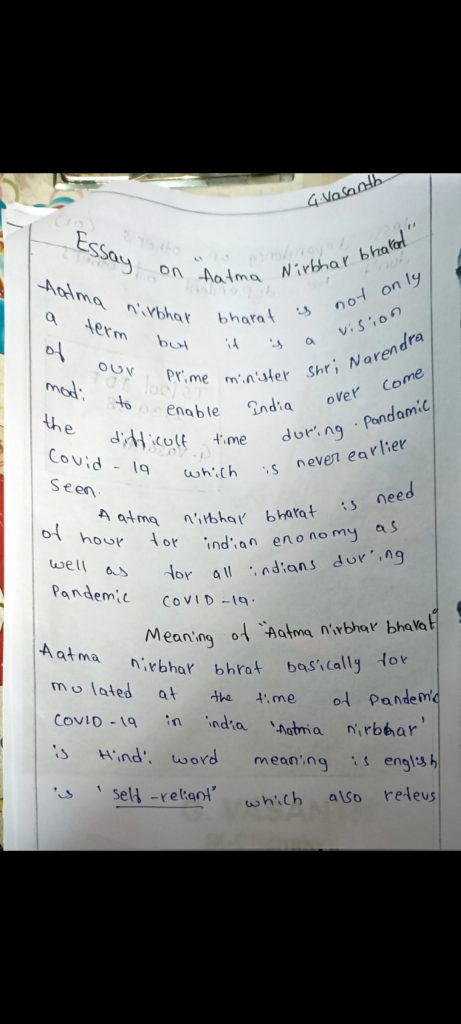 G.Vasanth
Essay on "Aatma Nirbhar bharat"
Aatma nirbhar bharat is not only
a term but it is a vision
of our prime minister shri Narendra
modi to enable India over come
the difficult time during. Pandamic
Covid - 19 which is never earlier
seen.
Aatma nirbhar bharat is need
of hour for indian enonomy as
well as for all indians during
Pandemic COVID-19.
Meaning of "Aatma nirbhar bharat"
Aatma nirbhar bhrat basically for
mulated at the time of Pandemic
COVID-19 in india 'Aatma nirbhar'
is Hindi word meaning is english
is 'self-reliant" which also refers